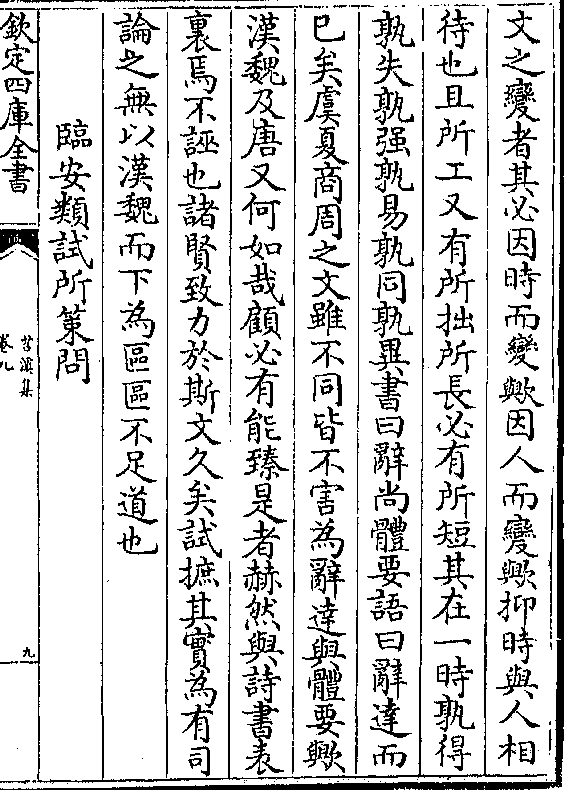 文之變者其必因時而變歟因人而變歟抑時與人相
待也且所工又有所拙所長必有所短其在一時孰得
孰失孰强孰易孰同孰異書曰辭尚體要語曰辭達而
已矣虞夏商周之文雖不同皆不害為辭達與體要歟
漢魏及唐又何如哉顧必有能臻是者赫然與詩書表
裏焉不誣也諸賢致力於斯文久矣試摭其實為有司
論之無以漢魏而下為區區不足道也
臨安類試所策問
欽定四庫全書
苕溪集
卷九
九